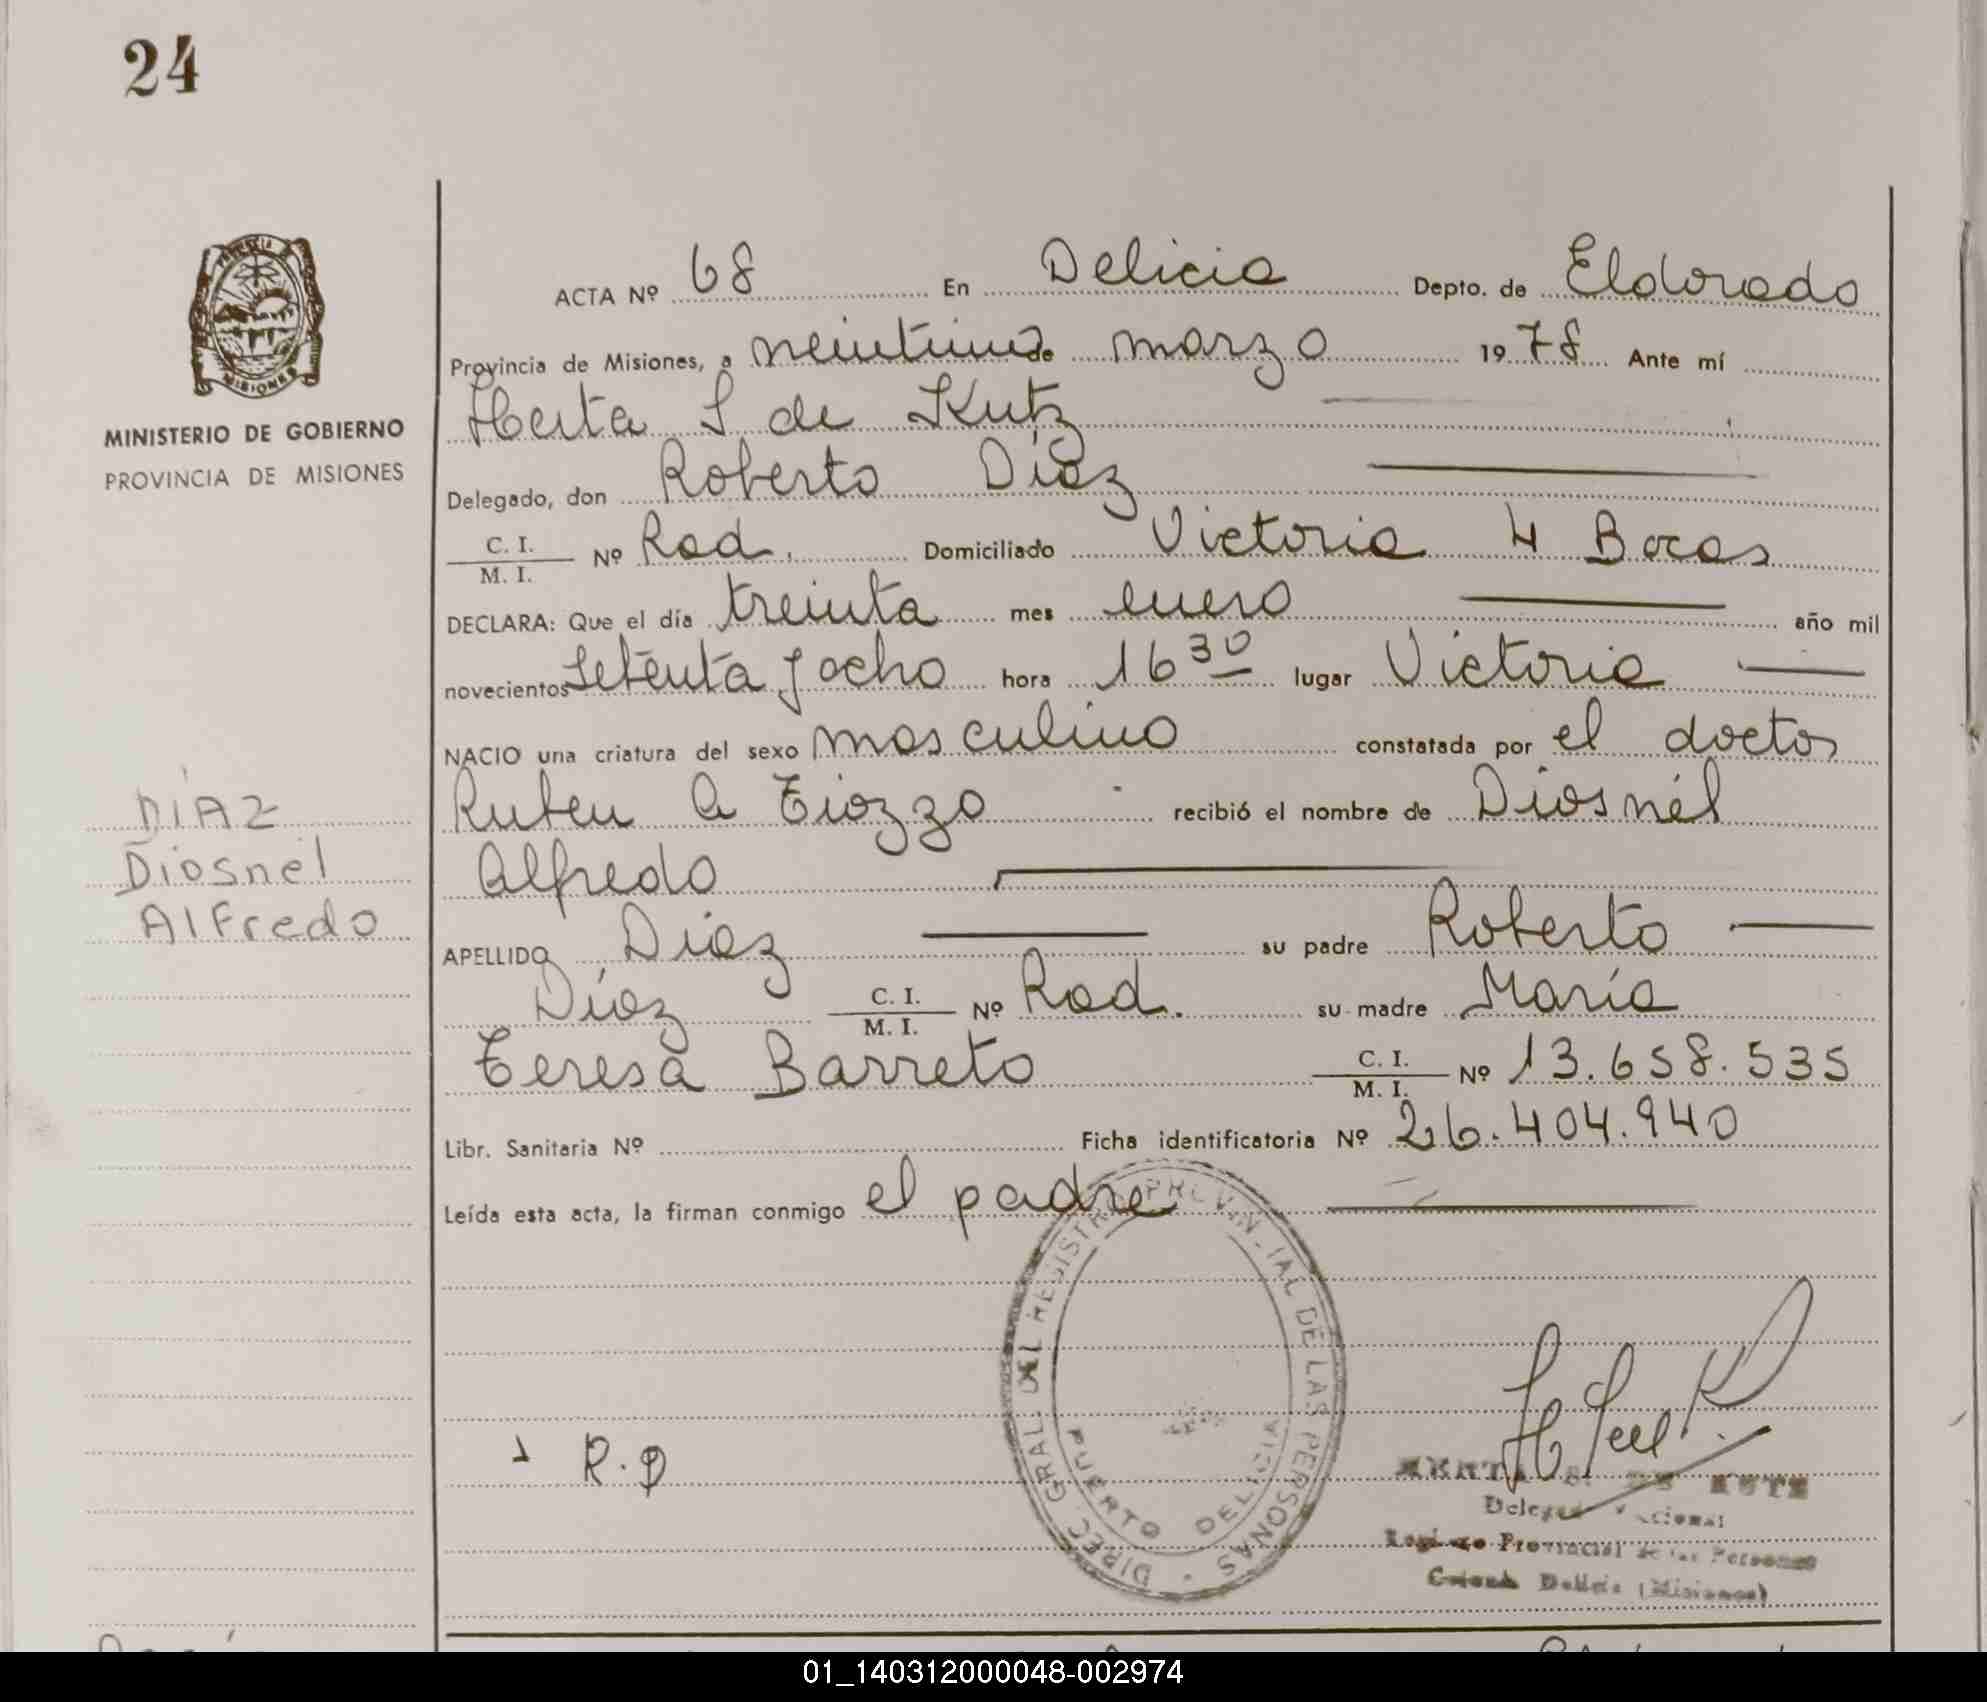 24
MINISTERIO DE GOBIERNO
PROVINCIA DE MISIONES
DÍAZ
Diosnel
Alfredo
ACTA Nº 68 En Delicia Depto. de Eldorado
Provincia de Misiones, a veintiuno de marzo 1978 Ante mí
Herta S de Kutz
Delegado, don Roberto Díaz
C. I. / M. I. Nº Rad. Domiciliado Victoria 4 Bocas
DECLARA: Que el día treinta mes enero año mil
novecientos setenta y ocho hora 16 30 lugar Victoria
NACIO una criatura del sexo masculino constatada por el doctor
Ruben A Tiozzo recibió el nombre de Diosnél
Alfredo
APELLIDO Díaz su padre Roberto
Díaz C. I. / M. I. Nº Rad. su madre María
Teresa Barreto C. I. / M. I. Nº 13.658.535
Libr. Sanitaria Nº Ficha identificatoria Nº 26.404.940
Leída esta acta, la firman conmigo el padre
DIREC. GRAL. DEL REGISTRO PROVINCIAL DE LAS PERSONAS
PUERTO DELICIA
R.D
HERTA S. DE KUTZ
Registro Provincial de las Personas
Delicia (Misiones)
01_140312000048-002974